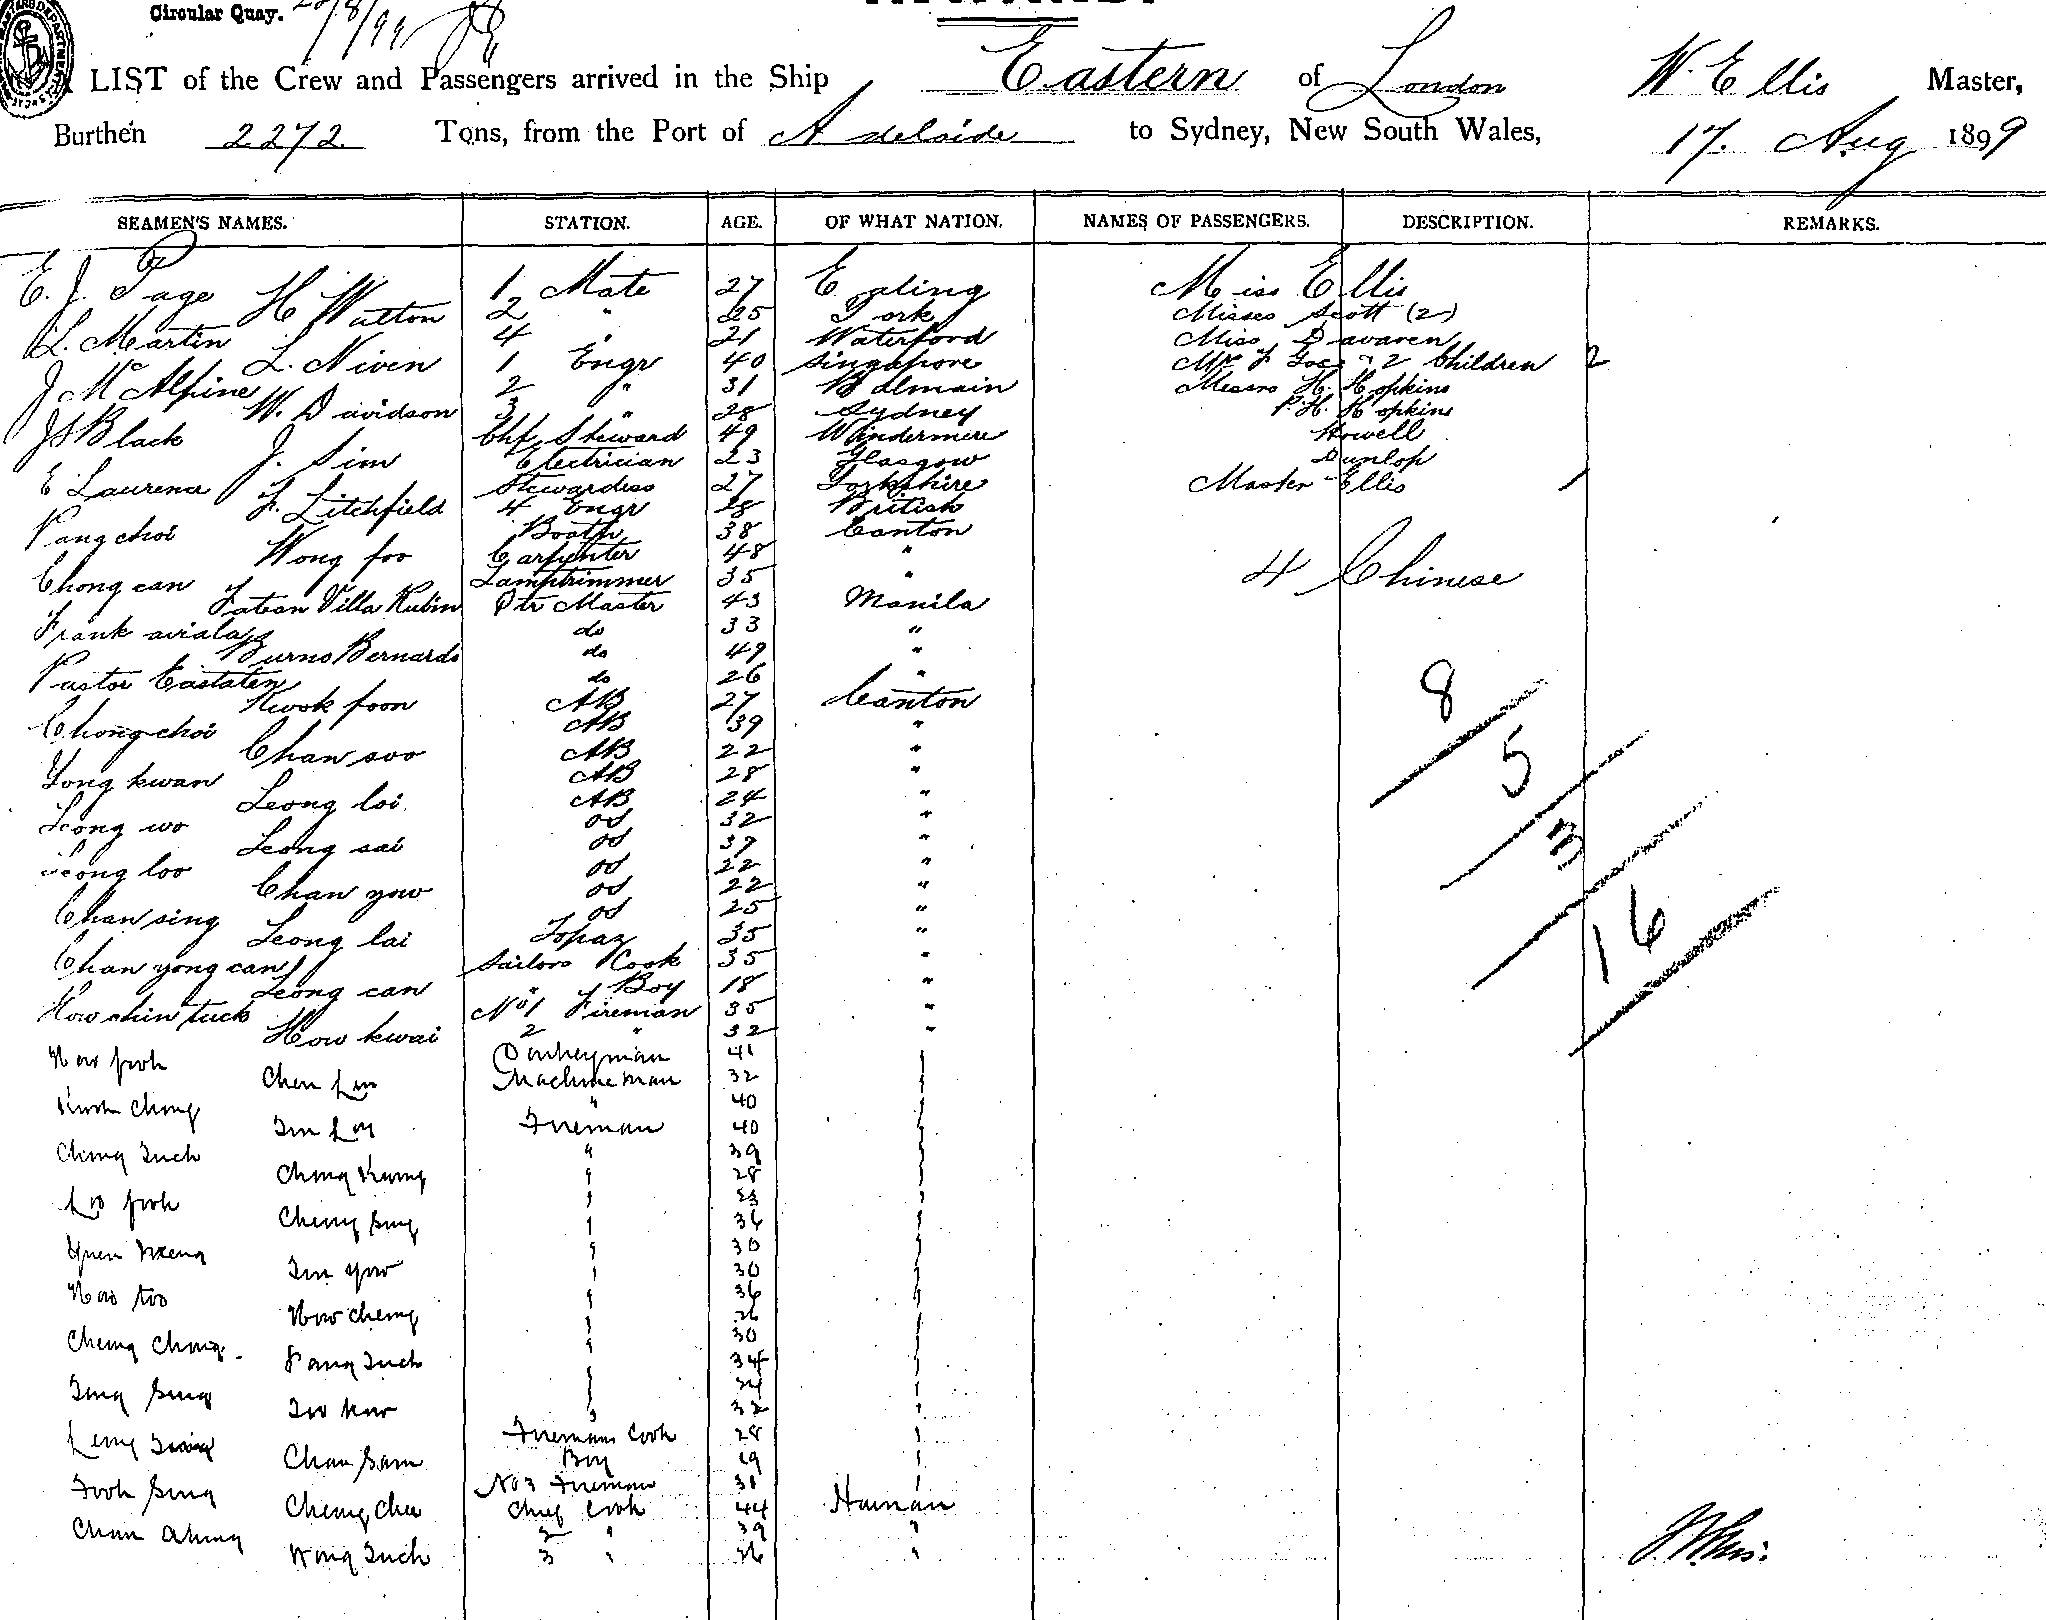 Circular Quay.
LIST of the Crew and Passengers arrived in the Ship Eastern of London W. Ellis Master,
Burthen 2272 Tons, from the Port of Adelaide to Sydney, New South Wales, 17. Aug 1899
SEAMEN'S NAMES. STATION. AGE. OF WHAT NATION. NAMES OF PASSENGERS. DESCRIPTION. REMARKS.
E. J. Page 1 Mate 27 Ealing Miss Ellis
H Walton 2 " 25 York Misses Scott (2)
L. Martin 4 " 21 Waterford Miss Davaren
L. Niven 1 Engr 40 Singapore & 2 Children 2
J McAlpine 2 " 31 Balmain Messrs H. Hopkins
W. Davidson 3 " 28 Sydney P. H. Hopkins
J S Black Chf Steward 49 Windermere Howell
J. Sim Electrician 23 Glasgow Dunlop
E Laurence Stewardess 27 Yorkshire Master Ellis 1
F. Litchfield 4 Engr 28 British
Pang choi 38 Canton
Wong foo Carpenter 48 " 4 Chinese
Chong can Lamptrimmer 35 "
Villa Rubin Qtr Master 43 Manila
Frank do 33 "
Burno Bernardo do 49 "
Pastor do 26 "
Kwok foon AB 27 Canton 8
Chong choi AB 39 "
Chan soo AB 22 " 5
Yong kwan AB 28 "
Leong loi AB 24 "
Leong wo OS 32 " 3
Leong sai OS 37 "
Leong loo OS 22 "
Chan yow OS 22 "
Chan sing OS 25 " 16
Leong lai Topaz 35 "
Chan yong can Sailors Cook 35 "
Leong can " Boy 18 "
How chin tuck No 1 Fireman 35 "
How kwai 2 " 32 "
How fook Donkeyman 41 "
Machineman 32 "
" 40 "
Fireman 40 "
" 39 "
" 28 "
"
Cheong Sing " 36 "
" 30 "
" 30 "
How too " 36 "
How cheong " 26 "
Cheong Chong " 30 "
Pang Tuck " 34 "
" 24 "
" 32 "
Firemans Cook 28 "
Chan Sam Boy 19 "
Fook Sing No 3 Fireman 31 "
Cheong Chee Chief Cook 44 Hainan
2 " 39 "
Wong Tuck 3 " 26 "